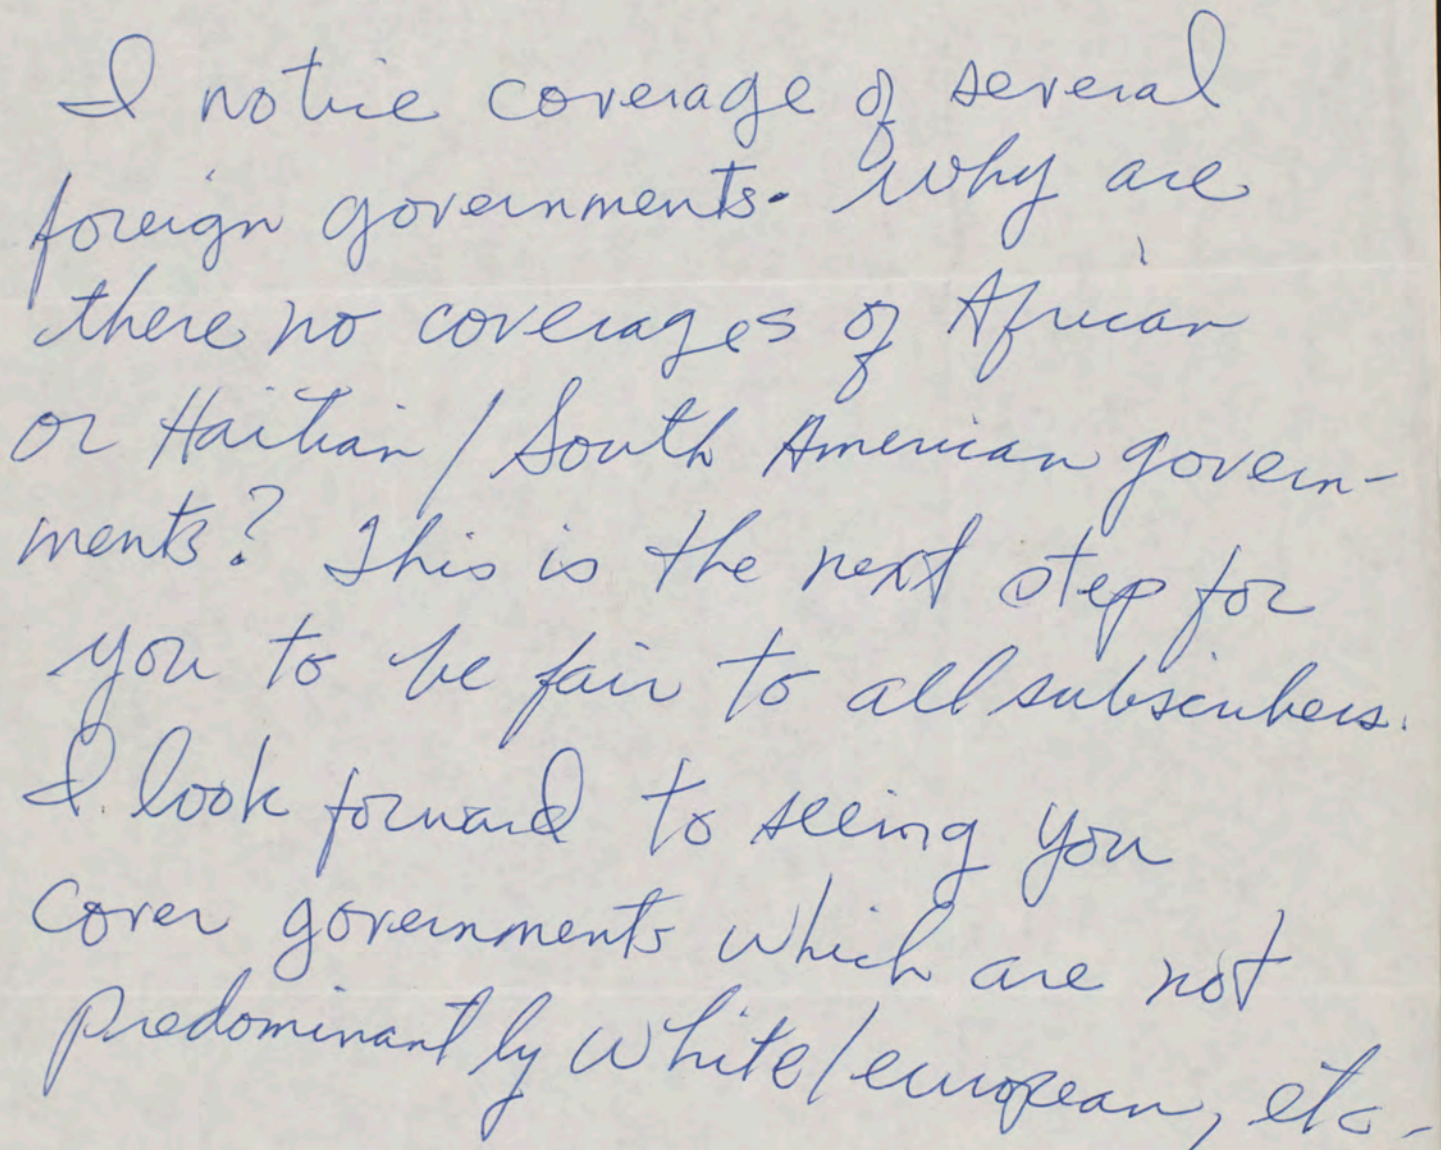 I notice coverage of several
foreign governments. Why are
there no coverages of African
or Haitian / South American govern-
ments? This is the next step for
you to be fair to all subscribers.
I look forward to seeing you
cover governments which are not
predominantly white/european, etc.